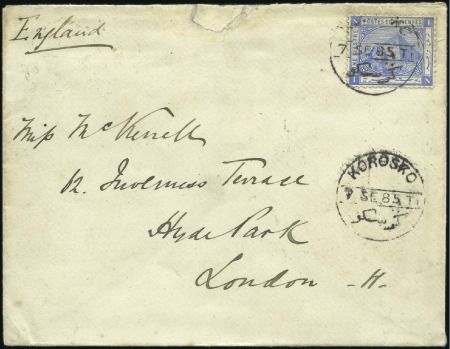 England
POSTES EGYPTIENNES
7 SE 85 T1
Miss McKerrell
62. Inverness Terrace
Hyde Park
London
KOROSKO
7 SE 85 T1
كورسكو